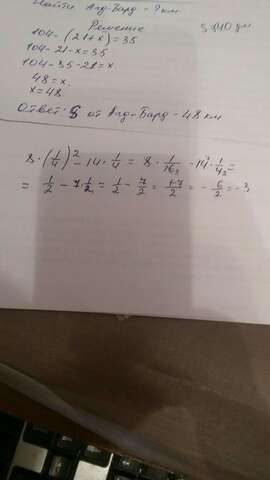 Найти Агд-Бард - ? км
Решение
104-(21+x)=35
104-21-x=35
104-35-21=x
48=x
x=48
Ответ: S от Агд-Бард - 48 км
8·(1/4)²-14·1/4=8·1/16₂-14⁷·1/4₂=
=1/2-7·1/2=1/2-7/2=1-7/2=-6/2=-3